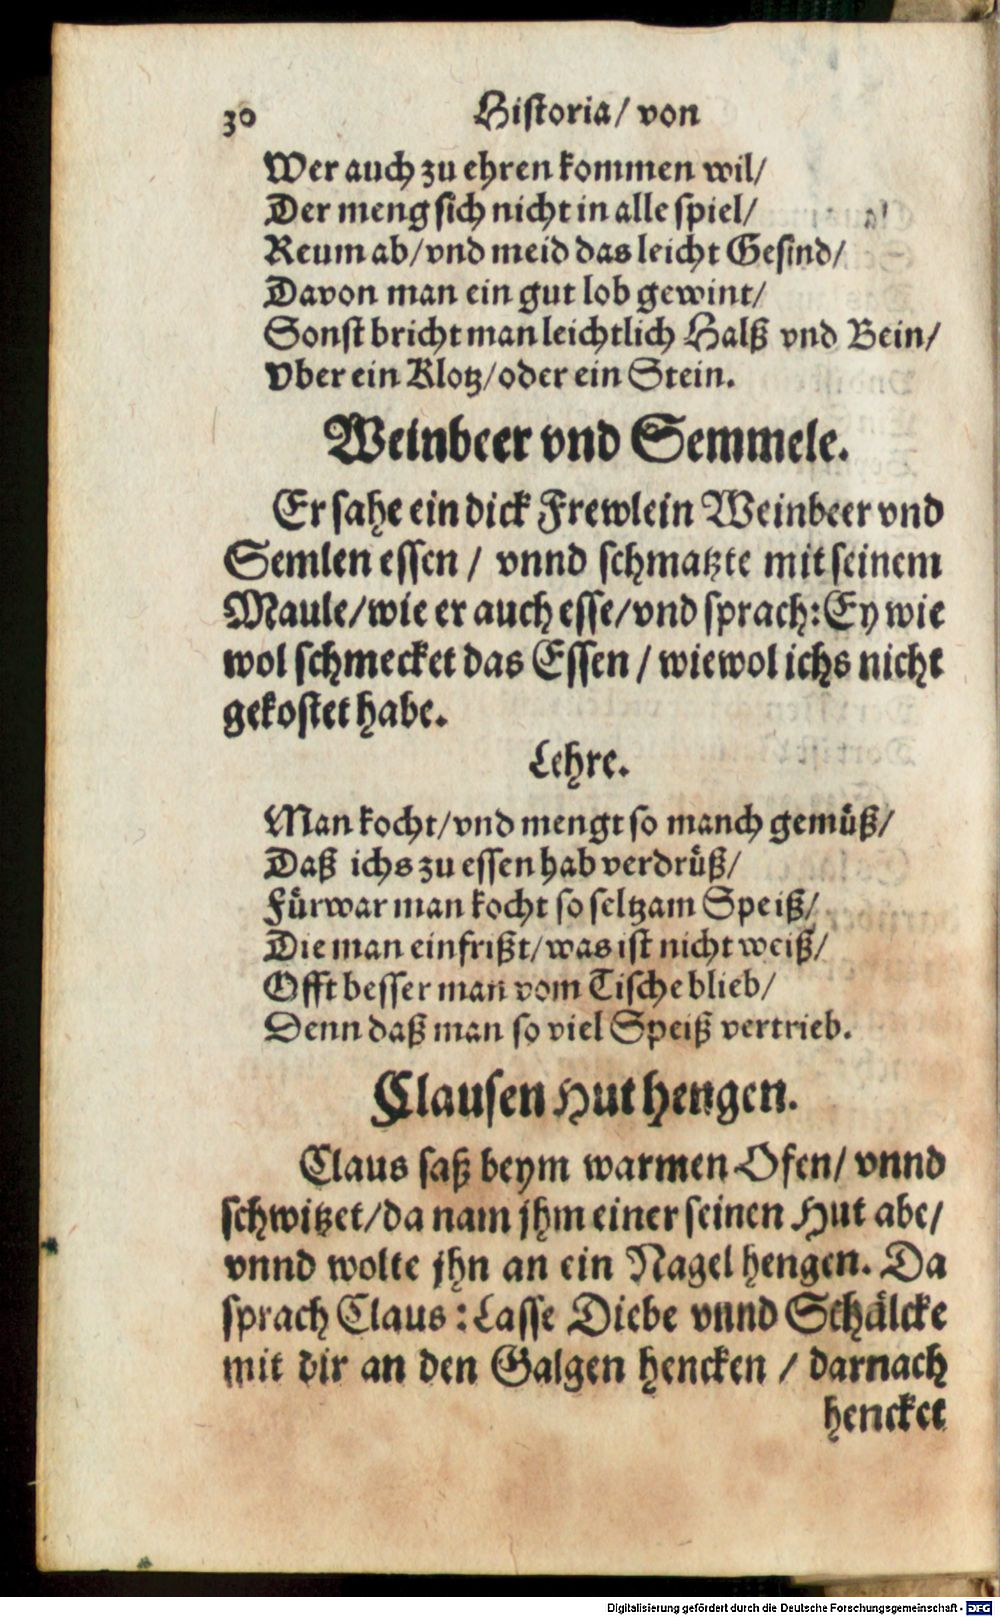 30 Historia/ von
Wer auch zu ehren kommen wil/
Der meng sich nicht in alle spiel/
Reum ab/vnd meid das leicht Gesind/
Davon man ein gut lob gewint/
Sonst bricht man leichtlich Halß vnd Bein/
Vber ein Klotz/oder ein Stein.
Weinbeer vnd Semmele.
Er sahe ein dick Frewlein Weinbeer vnd
Semlen essen / vnnd schmatzte mit seinem
Maule/wie er auch esse/vnd sprach: Ey wie
wol schmecket das Essen / wiewol ichs nicht
gekostet habe.
Lehre.
Man kocht/vnd mengt so manch gemüß/
Daß ichs zu essen hab verdrüß/
Fürwar man kocht so seltzam Speiß/
Die man einfrißt/was ist nicht weiß/
Offt besser man vom Tische blieb/
Denn daß man so viel Speiß vertrieb.
Clausen Hut hengen.
Claus saß beym warmen Ofen/ vnnd
schwitzet/da nam jhm einer seinen Hut abe/
vnnd wolte jhn an ein Nagel hengen. Da
sprach Claus: Lasse Diebe vnnd Schälcke
mit dir an den Galgen hencken / darnach
hencket
Digitalisierung gefördert durch die Deutsche Forschungsgemeinschaft - DFG